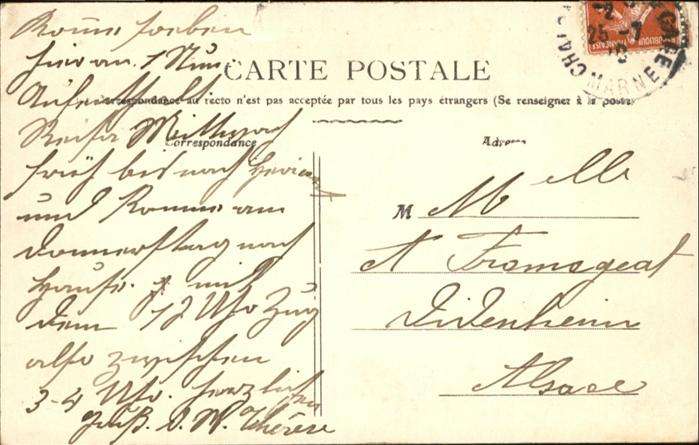 Komme soeben
hier an. 1 Stun
Aufenthalt.
Reise Mittwoch
früh bis nach
und komme am
Donnerstag nach
Hause. mit
dem 12 Uhr Zug
also zwischen
3-4 Uhr. herzlichen
Gruß. Thérèse
CARTE POSTALE
Correspondance au recto n'est pas acceptée par tous les pays étrangers (Se renseigner à la poste)
Correspondance
Adresse
M M elle
A Fromageat
Didenheim
Alsace
25-7
MARNE